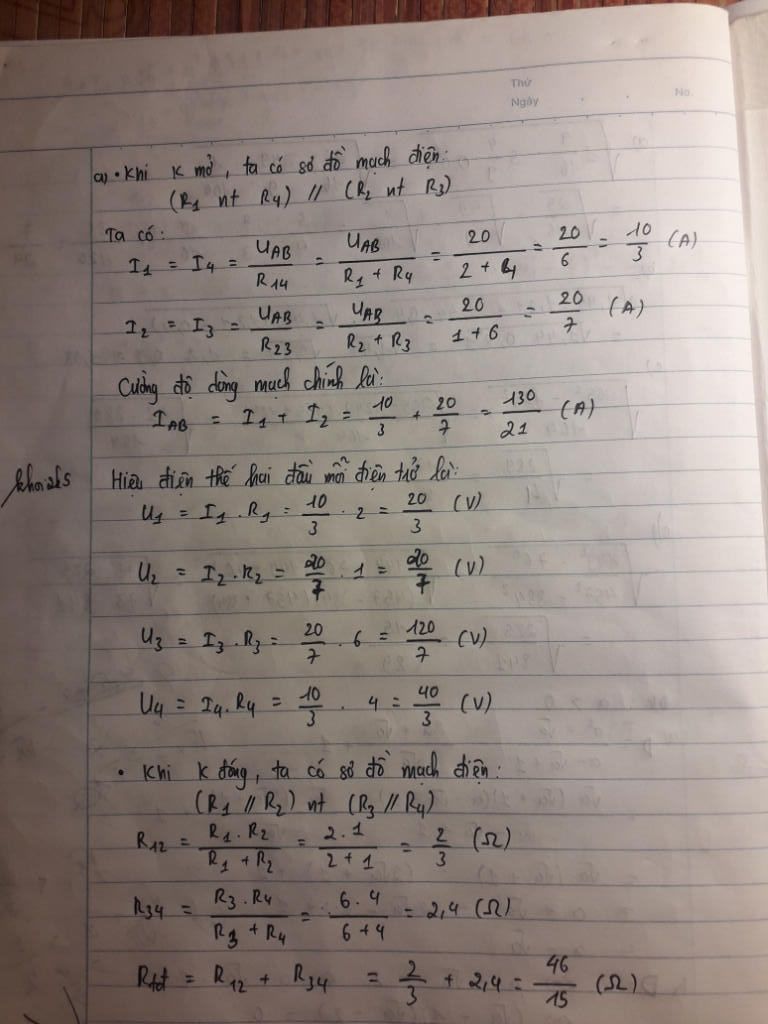 Thứ
Ngày . . No.
a) • Khi K mở, ta có sơ đồ mạch điện:
(R1 nt R4) // (R2 nt R3)
Ta có:
I1 = I4 = UAB/R14 = UAB/(R1 + R4) = 20/(2 + 4) = 20/6 = 10/3 (A)
I2 = I3 = UAB/R23 = UAB/(R2 + R3) = 20/(1 + 6) = 20/7 (A)
Cường độ dòng mạch chính là:
IAB = I1 + I2 = 10/3 + 20/7 = 130/21 (A)
khoi2k5
Hiệu điện thế hai đầu mỗi điện trở là:
U1 = I1 . R1 = 10/3 . 2 = 20/3 (V)
U2 = I2 . R2 = 20/7 . 1 = 20/7 (V)
U3 = I3 . R3 = 20/7 . 6 = 120/7 (V)
U4 = I4 . R4 = 10/3 . 4 = 40/3 (V)
• Khi K đóng, ta có sơ đồ mạch điện:
(R1 // R2) nt (R3 // R4)
R12 = R1 . R2/(R1 + R2) = 2 . 1/(2 + 1) = 2/3 (Ω)
R34 = R3 . R4/(R3 + R4) = 6 . 4/(6 + 4) = 2,4 (Ω)
Rtđ = R12 + R34 = 2/3 + 2,4 = 46/15 (Ω)